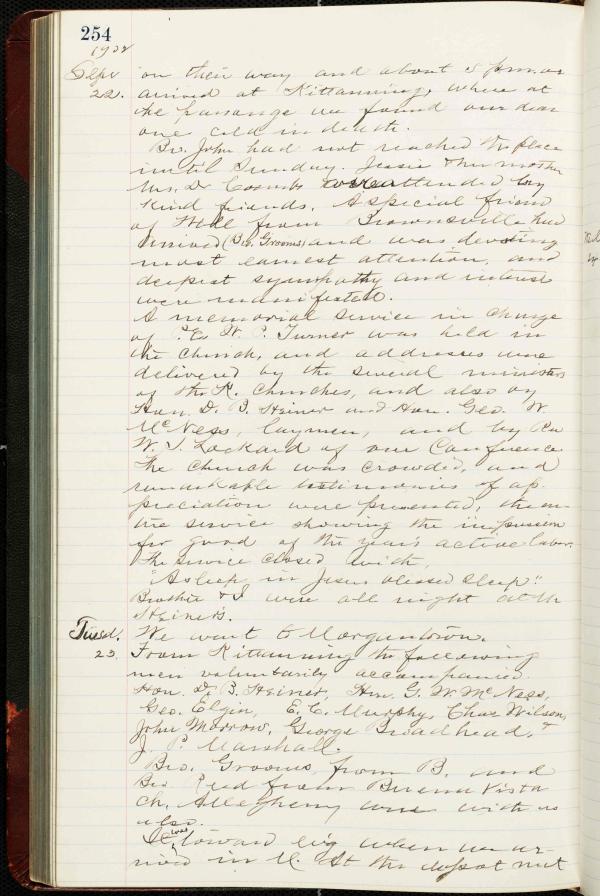 254
1902
Sept on their way and about 5 p.m. we
22. arrived at Kittanning, where at
the parsonage we found our dear
one cold in death.
Bro. John had not reached the place
until Sunday. Jessie & her mother
Mrs. Dr Coombs were attended by
kind friends. A special friend
of Will from Brownsville had
arrived (Bro. Grooms) and was devoting
most earnest attention, and
deepest sympathy and interest
were manifested.
A memorial service in charge
of P.E. W. P. Turner was held in
the church, and addresses were
delivered by the several ministers
of the K. churches, and also by
Hon. D. B. Heiner and Hon. Geo. W.
McNess, laymen, and by Rev
W. S. Lockard of our Conference
The church was crowded, and
remarkable testimonies of ap-
preciation were presented, the en-
tire service showing the impression
for good of the year's active labor.
The service closed with,
"Asleep in Jesus blessed sleep."
Brother & I were all night at the
Heiner's.
Tuesd. We went to Morgantown.
23. From Kittanning the following
men voluntarily accompanied.
Hon. D. B. Heiner, Hon. G. W. McNess,
Geo. Elgin, E. C. Murphy, Chas Wilson,
John Morrow, George Broadhead, &
J. P. Marshall.
Bro. Grooms from B. and
Bro. Reed from Buena Vista
Ch. Allegheny were with us
also.
It was toward ev'g when we ar-
rived in M. At the depot met